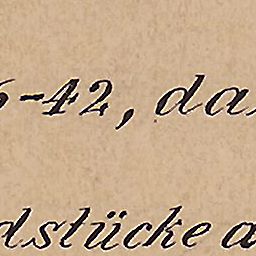 -42, da
dstücke a